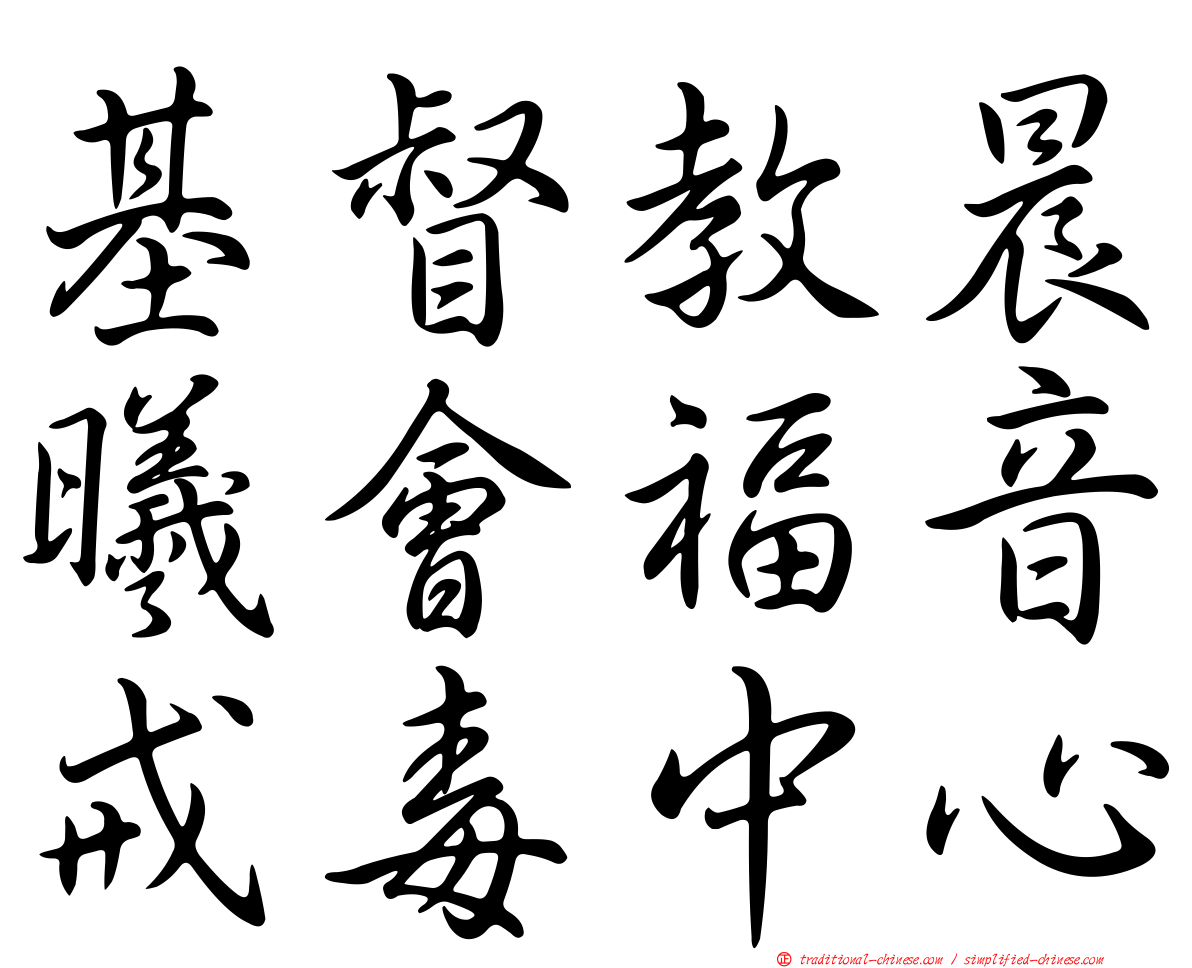 基督教晨
曦會福音
戒毒中心
㊣ traditional-chinese.com / simplified-chinese.com